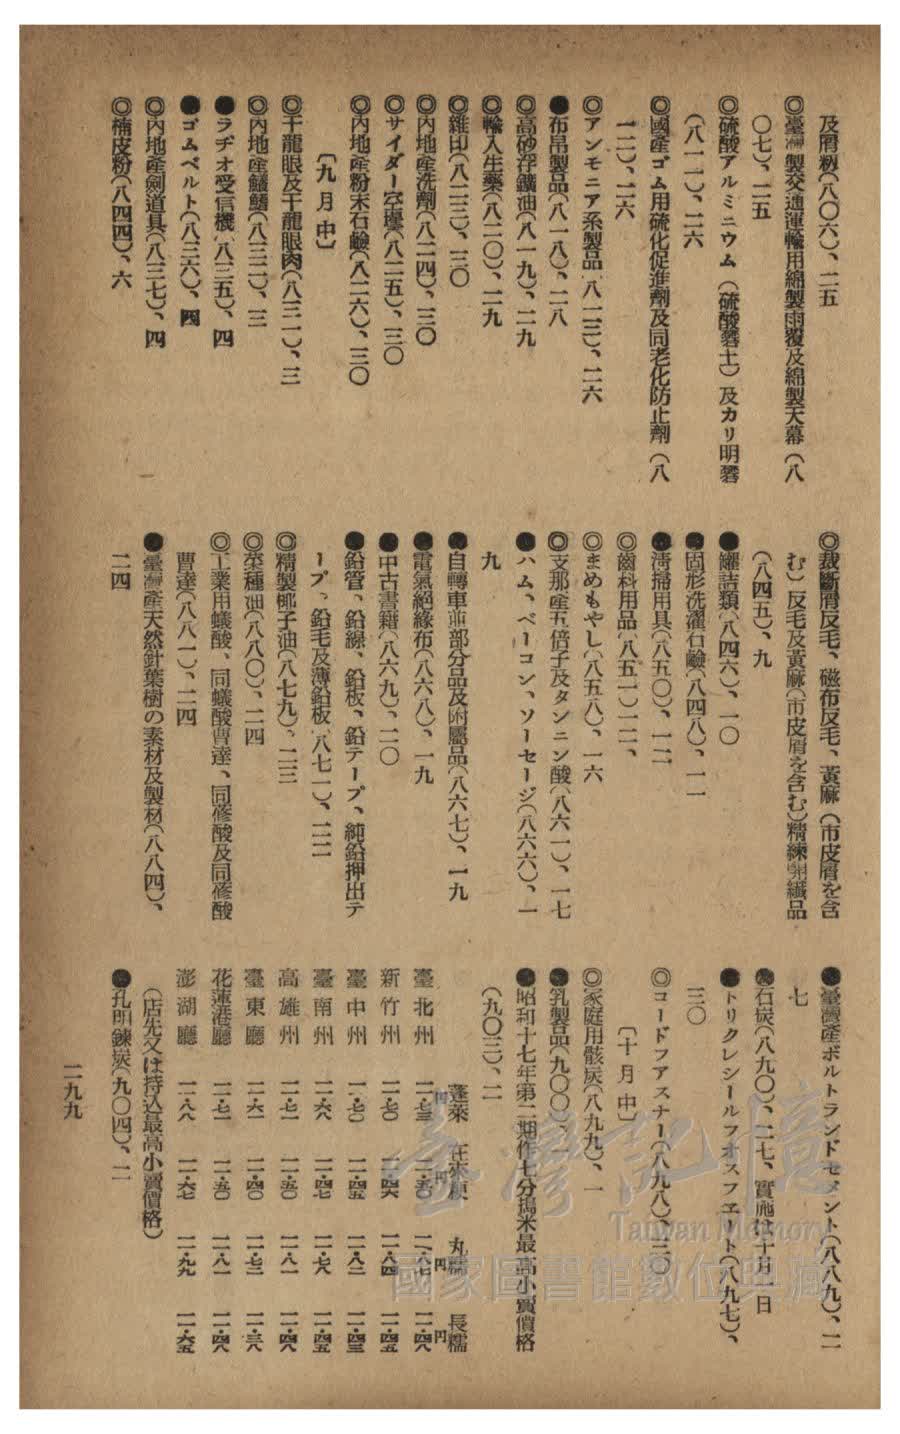 及屑糊(八〇六)、二五
◎臺灣製交通運輸用綿製雨覆及綿製天幕(八
〇七)、二五
◎硫酸アルミニウム(硫酸礬土)及カリ明礬
(八一一)、二六
◎國產ゴム用硫化促進劑及同老化防止劑(八
一二)、二六
◎アンモニア系製品(八一三)、二六
●布帛製品(八一八)、二八
◎高砂浮鑛油(八一九)、二九
◎輸入生藥(八二〇)、二九
◎雜印(八二三)、三〇
◎內地產洗劑(八二四)、三〇
◎サイダー空壜(八二五)、三〇
◎內地產粉末石鹼(八二六)、三〇
〔九月中〕
◎干龍眼及干龍眼肉(八三一)、三
◎內地產鱶鰭(八三二)、三
●ラヂオ受信機(八三五)、四
●ゴムベルト(八三六)、四
◎內地產劍道具(八三七)、四
◎楠皮粉(八四四)、六
◎裁斷屑反毛、磁布反毛、黃麻(市皮屑を含
む)反毛及黃麻(市皮屑を含む)精練開纖品
(八四五)、九
●罐詰類(八四六)、一〇
●固形洗濯石鹼(八四八)、一一
●淸掃用具(八五〇)、一二
◎齒科用品(八五一)一二、
◎まめもやし(八五八)、一六
◎支那產五倍子及タンニン酸(八六一)、一七
●ハム、ベーコン、ソーセージ(八六六)、一
九
●自轉車並部分品及附屬品(八六七)、一九
●電氣絕緣布(八六八)、一九
●中古書籍(八六九)、二〇
●鉛管、鉛線、鉛板、鉛テープ、純鉛押出テ
ープ、鉛毛及薄鉛板(八七一)、二二
◎精製椰子油(八七九)、二三
◎菜種油(八八〇)、二四
◎工業用蟻酸、同蟻酸曹達、同修酸及同修酸
曹達(八八一)、二四
●臺灣產天然針葉樹の素材及製材(八八四)、
二四
●臺灣產ポルトランドセメント(八八九)、二
七
●石炭(八九〇)、二七、實施は十月一日
●トリクレシールフオスフエート(八九七)、
三〇
◎コードフアスナー(八九八)、三〇
〔十月中〕
◎家庭用骸炭(八九九)、一
●乳製品(九〇〇)、一
●昭和十七年第二期作七分搗米最高小賣價格
(九〇三)、二
蓬萊 在來粳 丸糯 長糯
臺北州 二・七三円 二・五〇円 二・八七円 二・四八円
新竹州 二・七〇 二・四六 二・八四 二・四五
臺中州 二・七〇 二・四五 二・八二 二・四三
臺南州 二・六八 二・四七 二・七八 二・四五
高雄州 二・七一 二・五〇 二・八一 二・四八
臺東廳 二・六一 二・四〇 二・七二 二・三八
花蓮港廳 二・七一 二・五〇 二・八一 二・四八
澎湖廳 二・八八 二・六七 二・九九 二・六五
(店先又は持込最高小賣價格)
●孔明鍊炭(九〇四)、二
二九九
臺灣記憶
Taiwan Memory
國家圖書館數位典藏